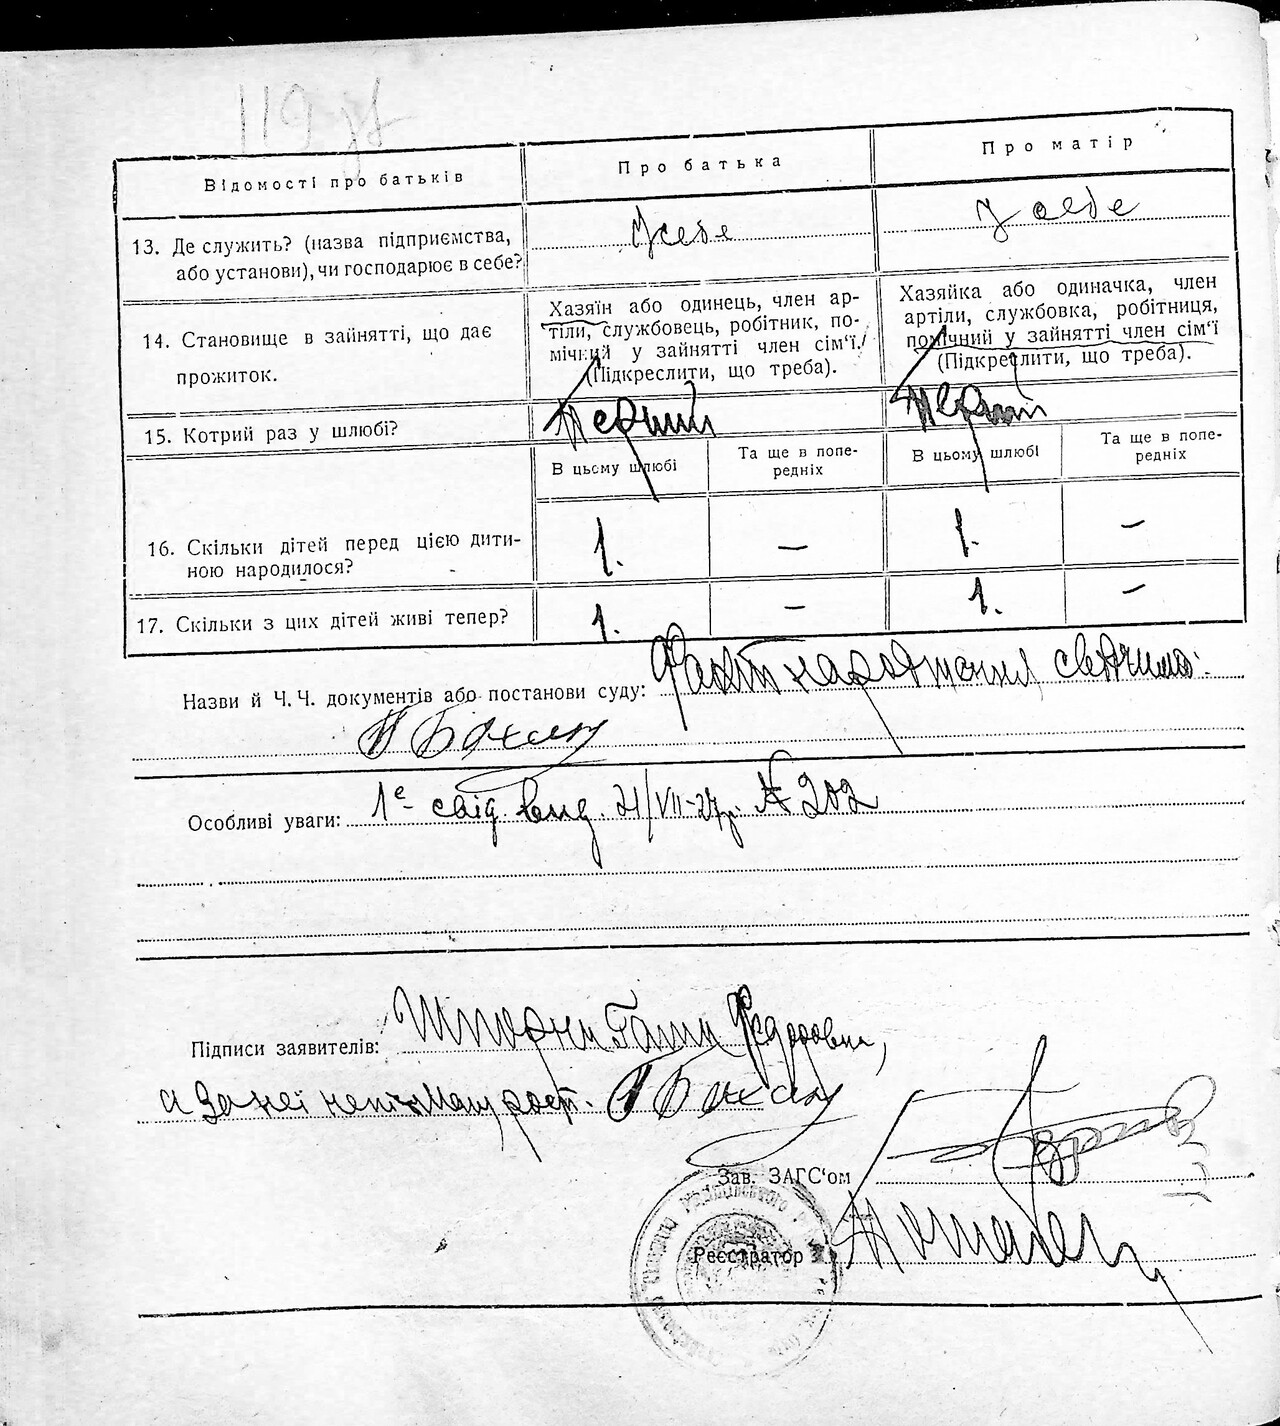 119 зв
Відомості про батьків
Про батька
Про матір
13. Де служить? (назва підприємства,
або установи), чи господарює в себе?
У себе
У себе
14. Становище в зайнятті, що дає
прожиток.
Хазяїн або одинець, член ар-
тіли, службовець, робітник, по-
мічний у зайнятті член сім'ї.
(Підкреслити, що треба).
Хазяйка або одиначка, член
артіли, службовка, робітниця,
помічний у зайнятті член сім'ї
(Підкреслити, що треба).
15. Котрий раз у шлюбі?
Перший
Перший
В цьому шлюбі
Та ще в попе-
редніх
В цьому шлюбі
Та ще в попе-
редніх
16. Скільки дітей перед цією дити-
ною народилося?
1.
—
1.
—
17. Скільки з цих дітей живі тепер?
1.
—
1.
—
Назви й Ч. Ч. документів або постанови суду: Факт народження свідчимо:
Особливі уваги: 1е свід. вид. 21/VII-27р. № 202
Підписи заявителів: Федоровна,
а за неї неписьмен. розп.
Зав. ЗАГС'ом
Реєстратор